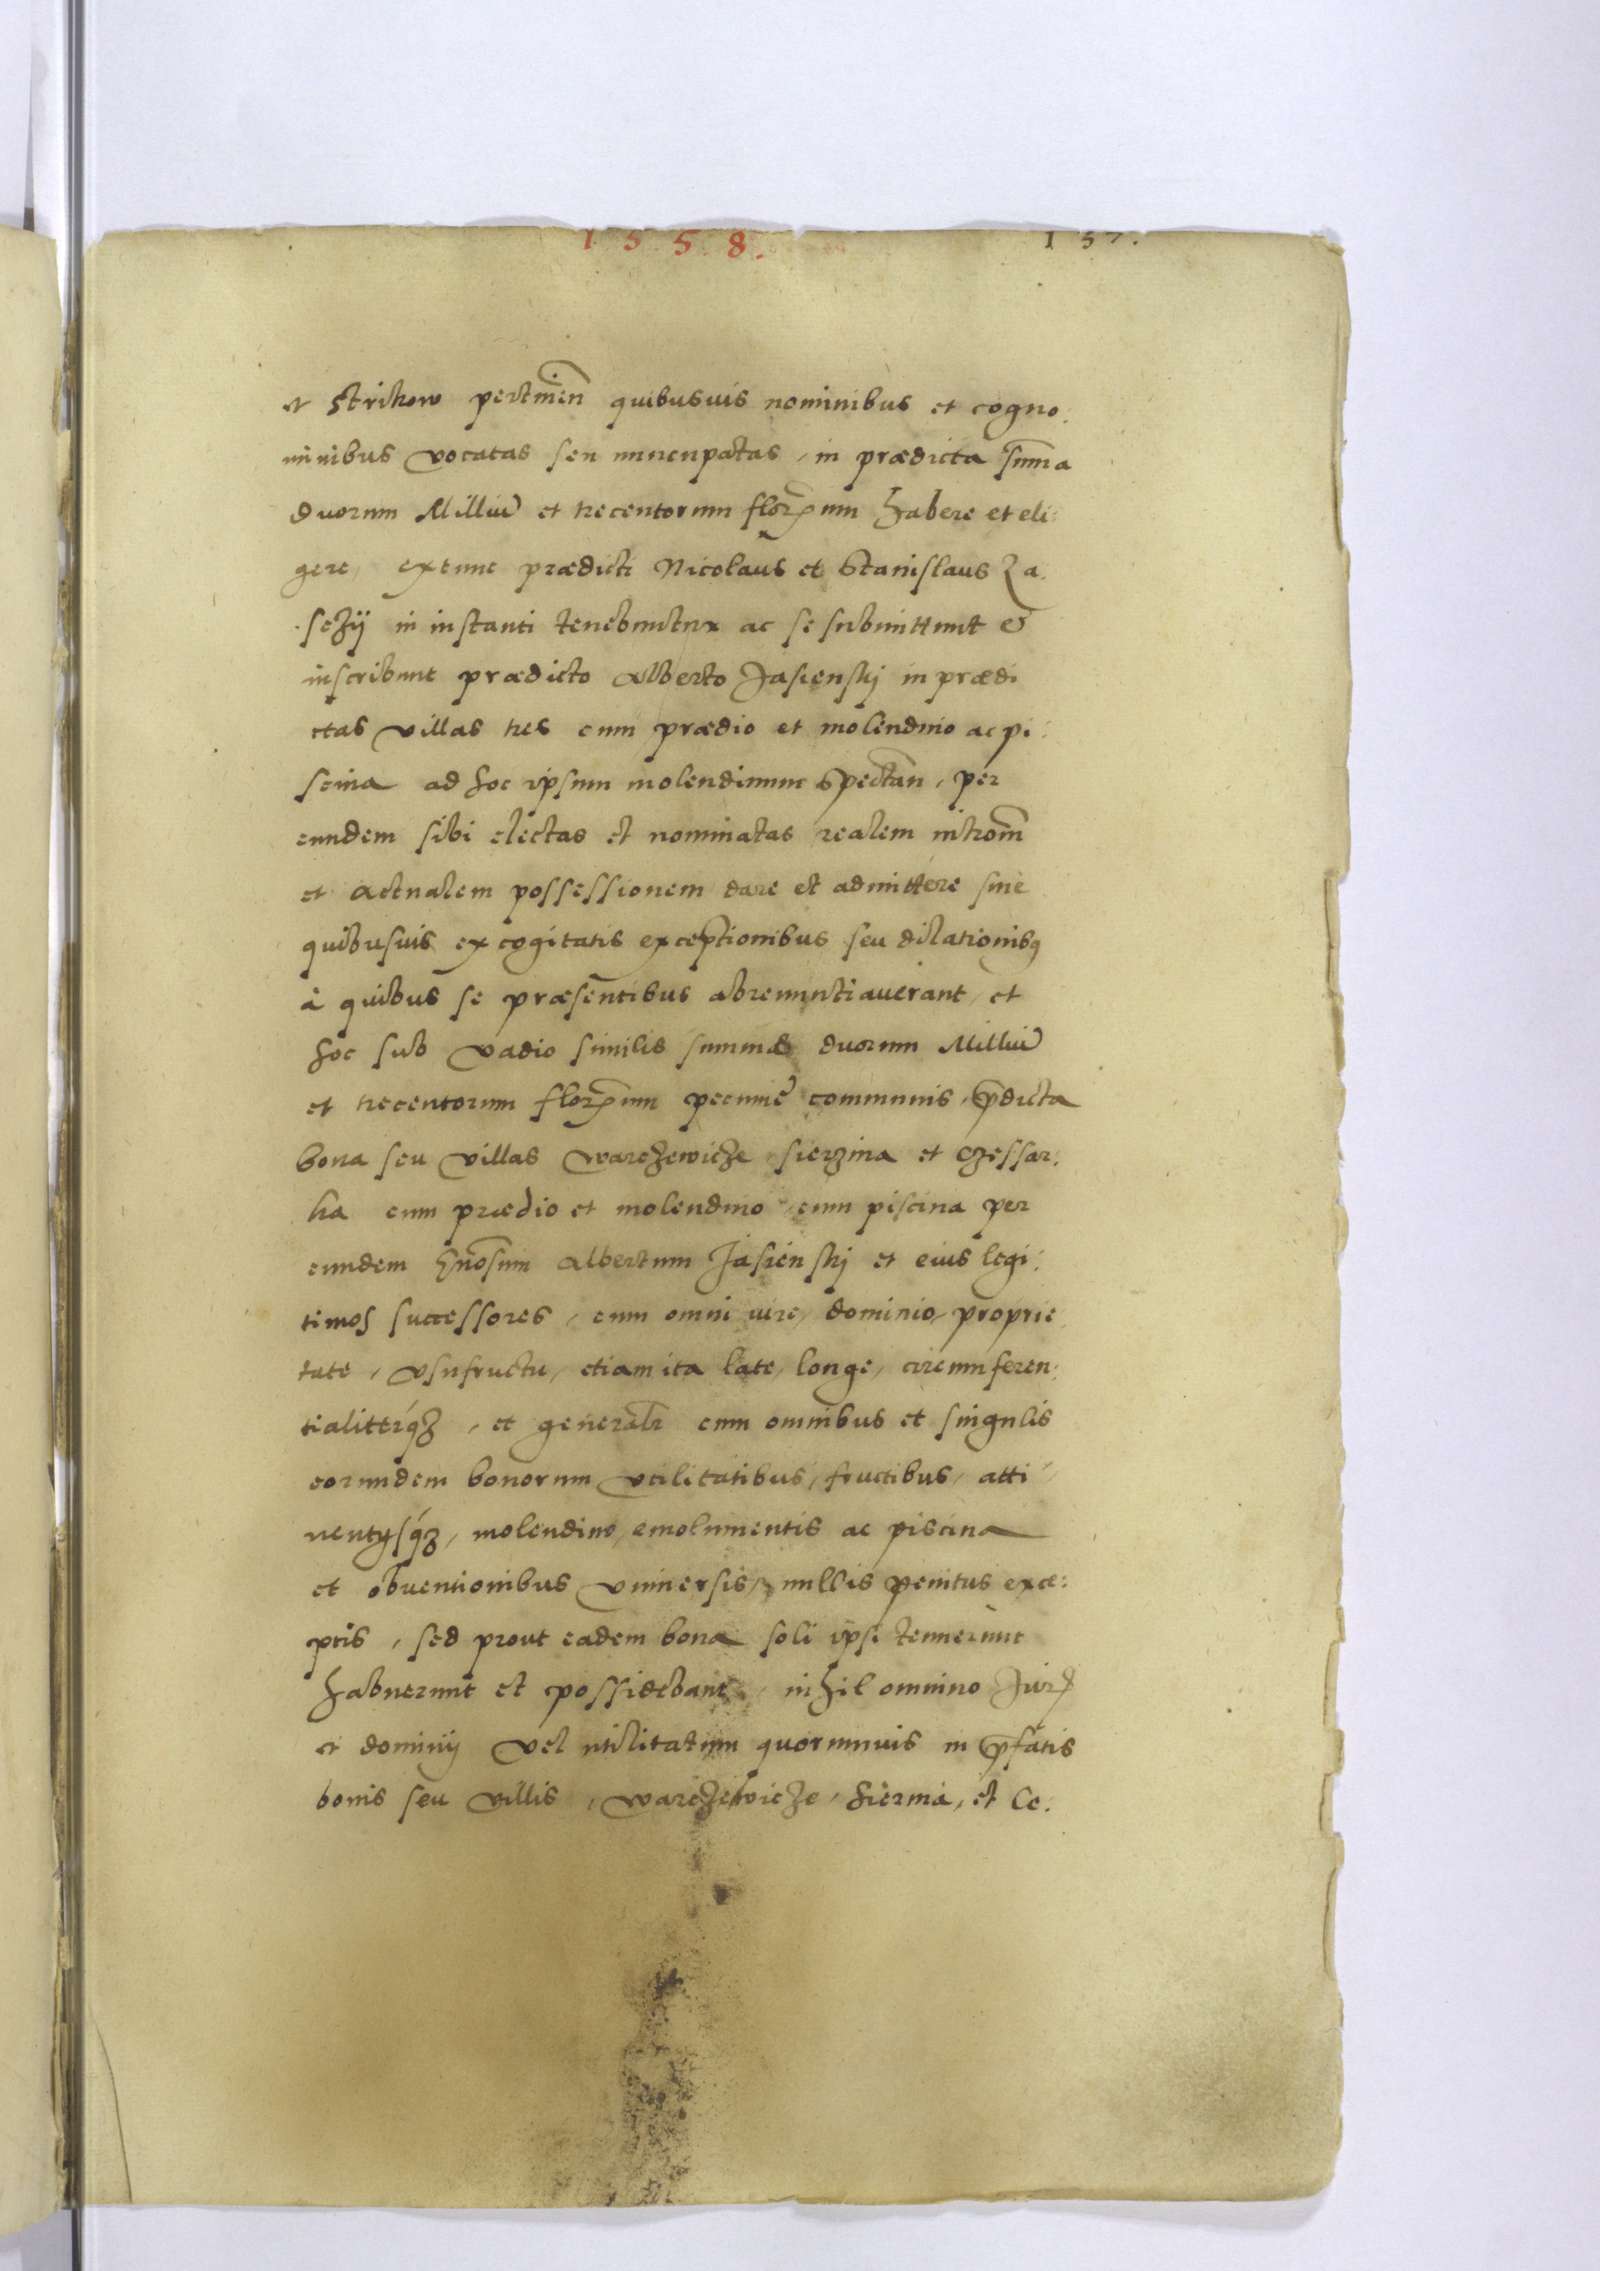 1 5 5 8.
1 57.
et Strikow pertinen̄ quibusuis nominibus et cogno:
minibus vocatas seu nuncupatas, in prædicta sum̄a
duorum Milliū et trecentorum florenum habere et eli:
gere, extunc prædicti Nicolaus et Stanislaus Za:
sezij in instanti tenebuntur ac se submittunt et
inscribunt prædicto Alberto Jasienskj in prædi
ctas villas tres cum prædio et molendino ac pi:
scina ad hoc ipsum molendinum spectan̄, per
eundem sibi electas et nominatas realem introm̄
et actualem possessionem dare et admittere sine
quibusuis excogitatis exceptionibus seu dilationibꝫ
à quibus se præsentibus abrenuntiauerant, et
hoc sub vadio similis summæ duorum Milliū
et trecentorum florenum pecuniæ communis, p̄dicta
bona seu villas warzewicze sierzina et czessar:
ka cum prædio et molendino cum piscina per
eundem Gn̄osum Albertum Jasienskj et eius legi:
timos successores, cum omni iure, dominio, proprie
tate, vsufructu, etiam ita late, longe, circumferen:
tialiterqꝫ, et generalr̄ cum omnibus et singulis
eorundem bonorum vtilitatibus, fructibus, atti
nentijsqꝫ, molendino, emolumentis ac piscina
et obuentionibus vniuersis, nullis penitus exce:
ptis, sed prout eadem bona soli ipsi tenuerunt
habuerunt et possidebant, nihil omnino Juris
et dominij vel utilitatum quorumuis in p̄fatis
bonis seu villis, warzewicze, sierznia, et Ce: